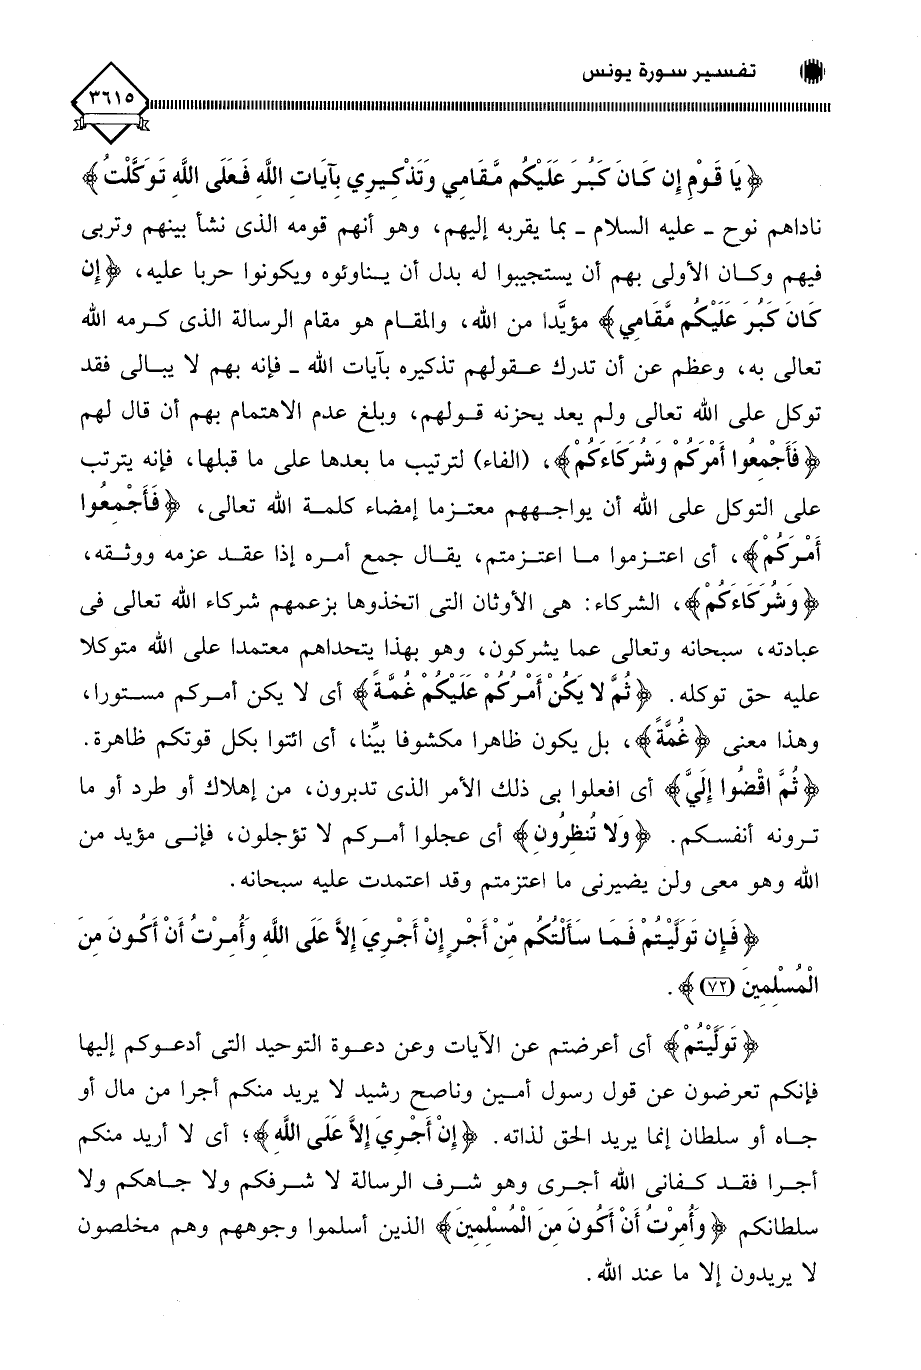 تفسير سورة يونس
٣٦١٥
﴿يَا قَوْمِ إِن كَانَ كَبُرَ عَلَيْكُم مَّقَامِي وَتَذْكِيرِي بِآيَاتِ اللَّهِ فَعَلَى اللَّهِ تَوَكَّلْتُ﴾
ناداهم نوح ـ عليه السلام ـ بما يقربه إليهم، وهو أنهم قومه الذى نشأ بينهم وتربى
فيهم وكان الأولى بهم أن يستجيبوا له بدل أن يناوئوه ويكونوا حربا عليه، ﴿إِن
كَانَ كَبُرَ عَلَيْكُم مَّقَامِي﴾ مؤيَّدا من الله، والمقام هو مقام الرسالة الذى كرمه الله
تعالى به، وعظم عن أن تدرك عقولهم تذكيره بآيات الله ـ فإنه بهم لا يبالى فقد
توكل على الله تعالى ولم يعد يحزنه قولهم، وبلغ عدم الاهتمام بهم أن قال لهم
﴿فَأَجْمِعُوا أَمْرَكُمْ وَشُرَكَاءَكُمْ﴾، (الفاء) لترتيب ما بعدها على ما قبلها، فإنه يترتب
على التوكل على الله أن يواجههم معتزما إمضاء كلمة الله تعالى، ﴿فَأَجْمِعُوا
أَمْرَكُمْ﴾، أى اعتزموا ما اعتزمتم، يقال جمع أمره إذا عقد عزمه ووثقه،
﴿وَشُرَكَاءَكُمْ﴾، الشركاء: هى الأوثان التى اتخذوها بزعمهم شركاء الله تعالى فى
عبادته، سبحانه وتعالى عما يشركون، وهو بهذا يتحداهم معتمدا على الله متوكلا
عليه حق توكله. ﴿ثُمَّ لا يَكُنْ أَمْرُكُمْ عَلَيْكُمْ غُمَّةً﴾ أى لا يكن أمركم مستورا،
وهذا معنى ﴿غُمَّةً﴾، بل يكون ظاهرا مكشوفا بيِّنا، أى ائتوا بكل قوتكم ظاهرة.
﴿ثُمَّ اقْضُوا إِلَيَّ﴾ أى افعلوا بى ذلك الأمر الذى تدبرون، من إهلاك أو طرد أو ما
ترونه أنفسكم. ﴿وَلا تُنظِرُونِ﴾ أى عجلوا أمركم لا تؤجلون، فإنى مؤيد من
الله وهو معى ولن يضيرنى ما اعتزمتم وقد اعتمدت عليه سبحانه.
﴿فَإِن تَوَلَّيْتُمْ فَمَا سَأَلْتُكُم مِّنْ أَجْرٍ إِنْ أَجْرِيَ إِلاَّ عَلَى اللَّهِ وَأُمِرْتُ أَنْ أَكُونَ مِنَ
الْمُسْلِمِينَ (٧٢)﴾.
﴿تَوَلَّيْتُمْ﴾ أى أعرضتم عن الآيات وعن دعوة التوحيد التى أدعوكم إليها
فإنكم تعرضون عن قول رسول أمين وناصح رشيد لا يريد منكم أجرا من مال أو
جاه أو سلطان إنما يريد الحق لذاته. ﴿إِنْ أَجْرِيَ إِلاَّ عَلَى اللَّهِ﴾؛ أى لا أريد منكم
أجرا فقد كفانى الله أجرى وهو شرف الرسالة لا شرفكم ولا جاهكم ولا
سلطانكم ﴿وَأُمِرْتُ أَنْ أَكُونَ مِنَ الْمُسْلِمِينَ﴾ الذين أسلموا وجوههم وهم مخلصون
لا يريدون إلا ما عند الله.